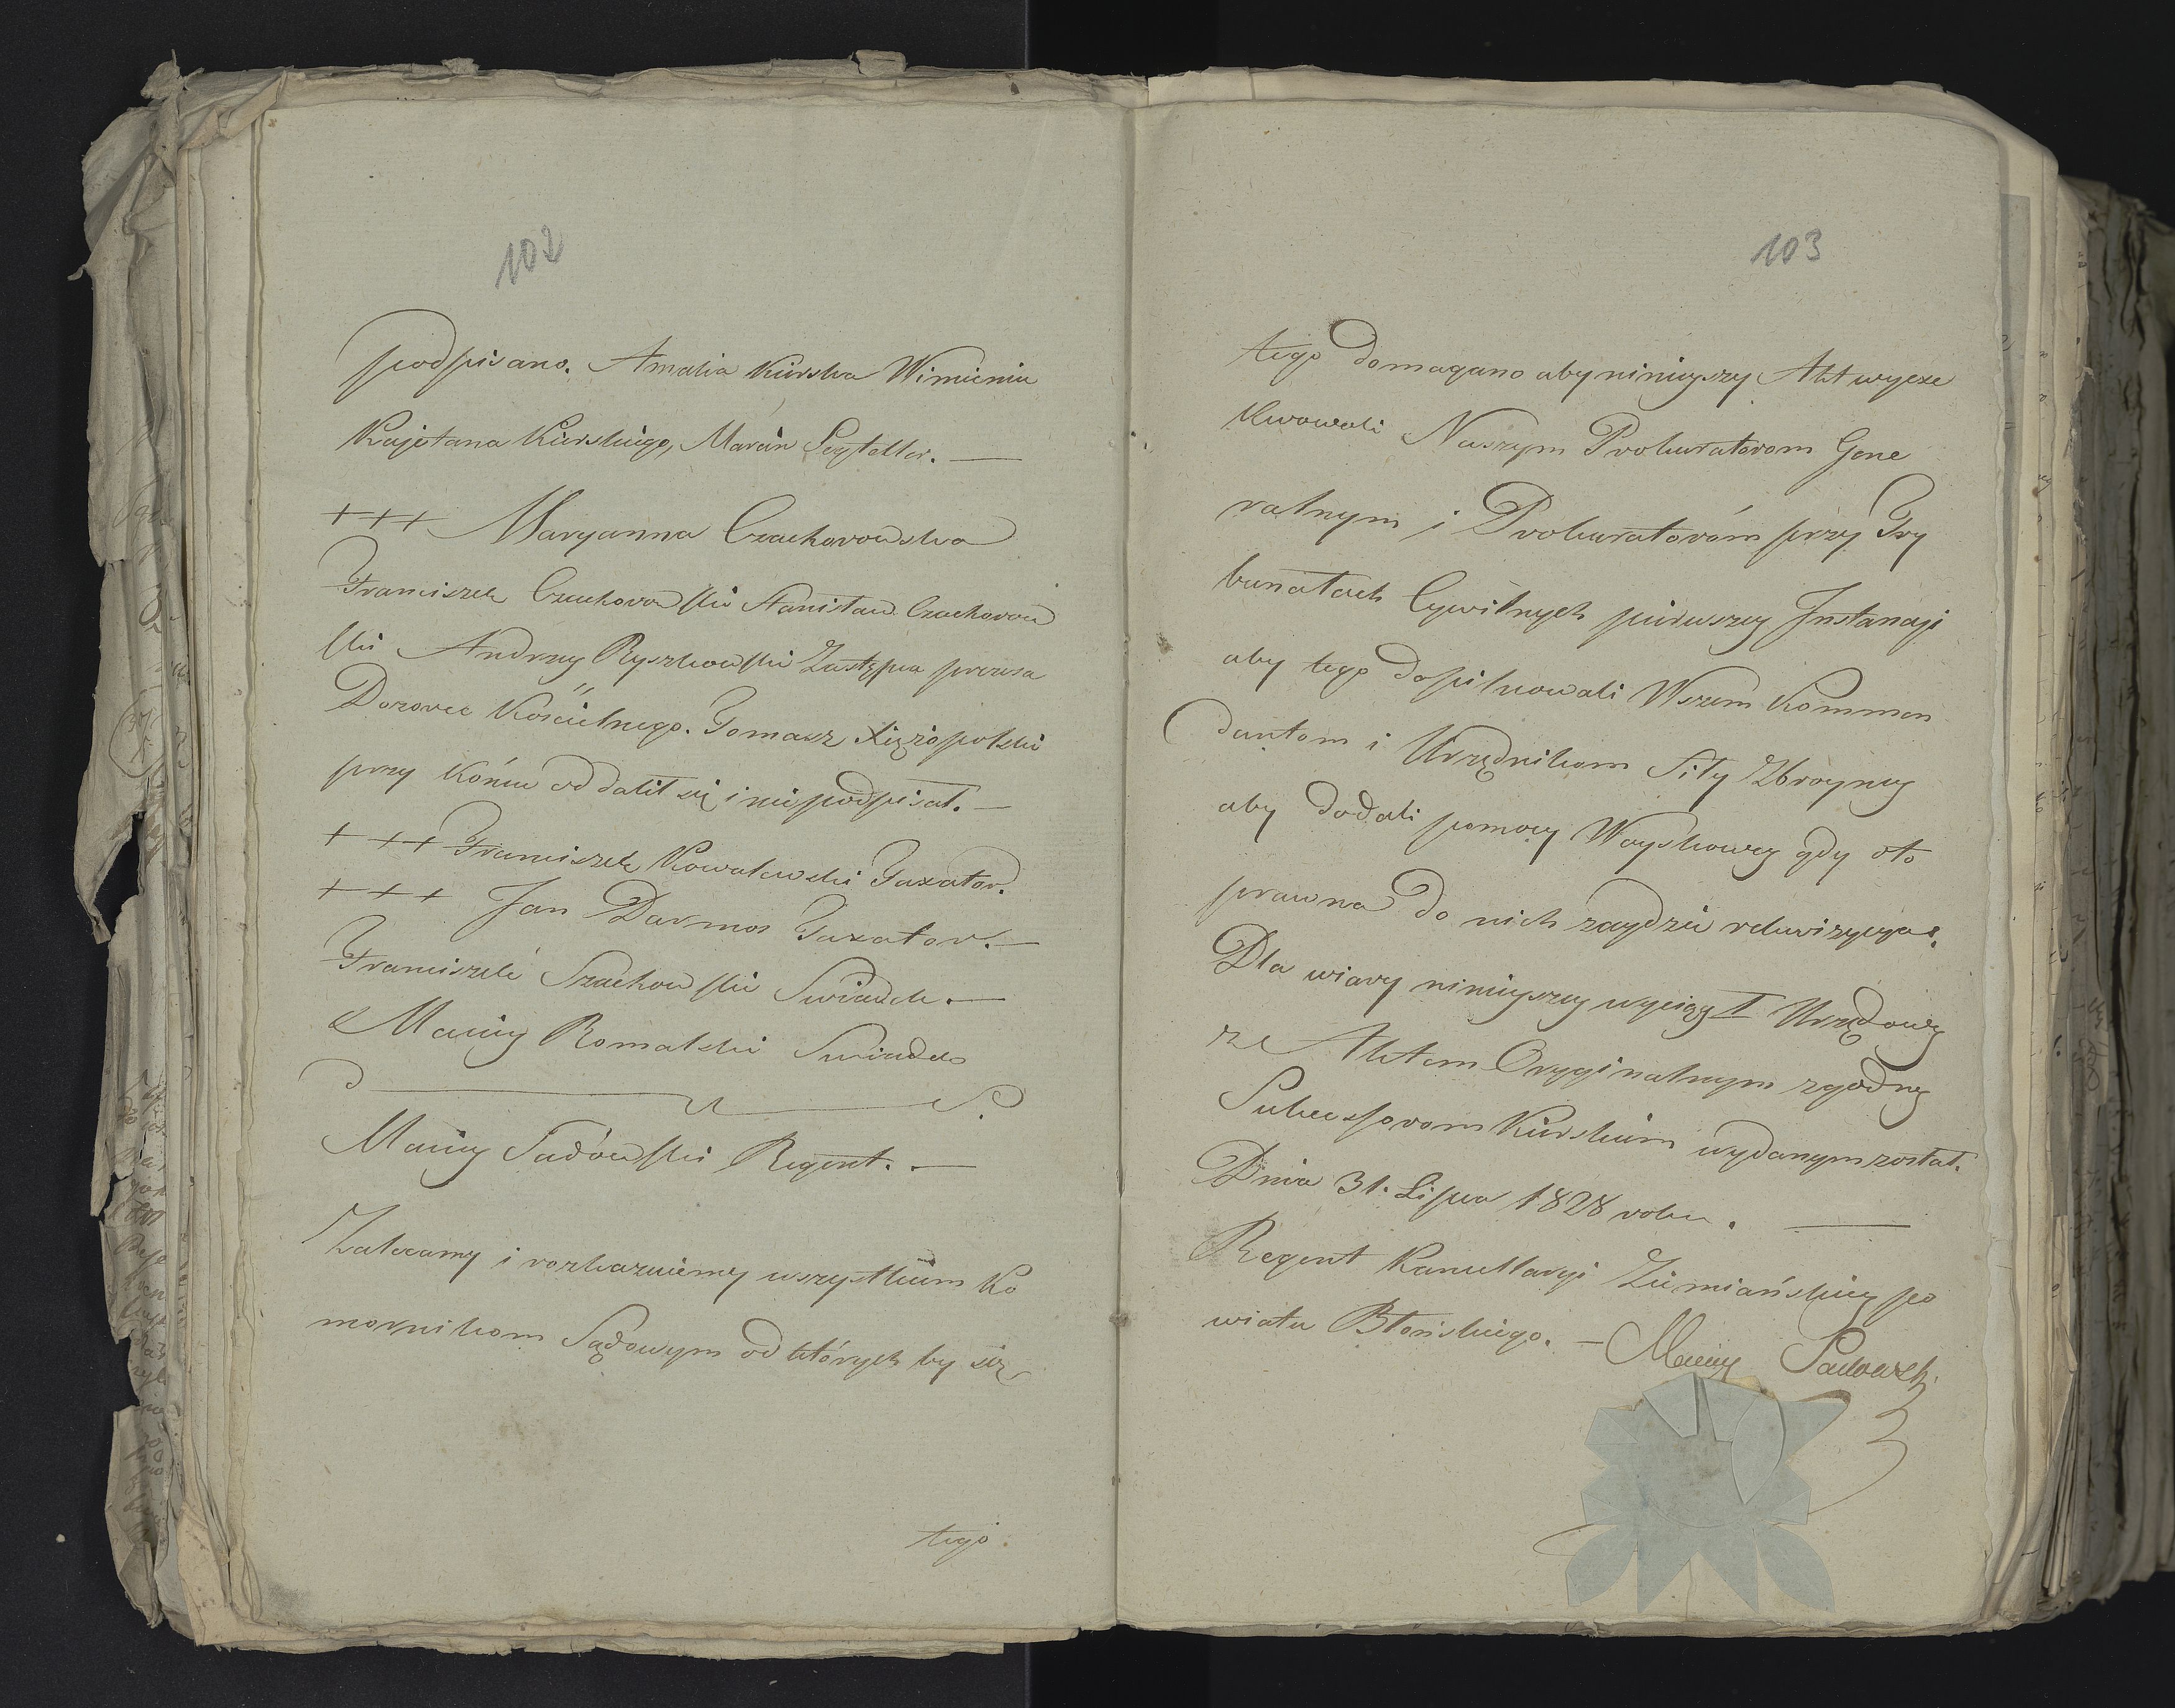 102
podpisano. Amalia Kurska Wimieniu
Kajetana Kurskiego, Marcin
+++ Maryanna Czachorowska
Franciszek Czachorowski Stanisław Czachorow
ski Andrzey Ryszkowski Zastępca prezesa
Dozoru Kościelnego. Tomasz Xiężopolski
przy końcu oddalił się i nie podpisał. —
+ ++ Franciszek Kowalewski Taxator.
+ + + Jan Darmos Taxator. —
Franciszek Szachowski Swiadek. —
Maciey Romalski Swiadek
Maciey Sadowski Regent. —
Zalecamy i rozkazuiemy wszystkim Ko
mornikom Sądowym od których by się
tego
103
tego domagano aby ninieyszy Akt wyexe
kwowali Naszym Prokuratorom Gene
ralnym i Prokuratoróm przy Try
bunałach Cywilnych pierwszey Instancyi
aby tego dopilnowali Wszem Kommen
dantom i Urzędnikom Siły Zbroyney
aby dodali pomocy Woyskowey gdy oto
prawna do nich zaydzie rekwizycya.
Dla wiary ninieyszy wyciąg I Urzędowy
ze Aktem Oryginalnym zgodny
Sukcessorom Kurskim wydanym został.
Dnia 31. Lipca 1828 roku. —
Regent Kancellaryi Ziemiańskiey po
wiatu Błońskiego. — Maciey Sadowski